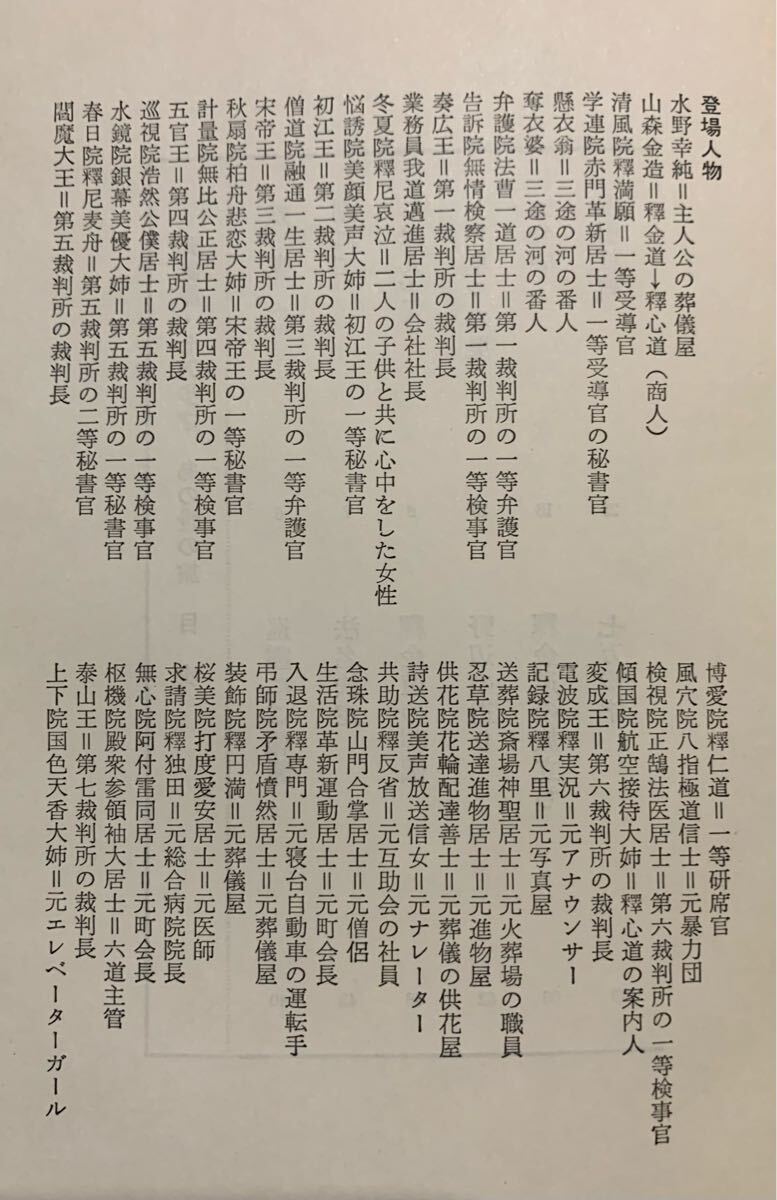 登場人物
水野幸純＝主人公の葬儀屋
山森金造＝釋金道→釋心道（商人）
清風院釋満願＝一等受導官
学連院赤門革新居士＝一等受導官の秘書官
懸衣翁＝三途の河の番人
奪衣婆＝三途の河の番人
弁護院法曹一道居士＝第一裁判所の一等弁護官
告訴院無情検察居士＝第一裁判所の一等検事官
奏広王＝第一裁判所の裁判長
業務員我道邁進居士＝会社社長
冬夏院釋尼哀泣＝二人の子供と共に心中をした女性
悩誘院美顔美声大姉＝初江王の一等秘書官
初江王＝第二裁判所の裁判長
僧道院融通一生居士＝第三裁判所の一等弁護官
宋帝王＝第三裁判所の裁判長
秋扇院柏舟悲恋大姉＝宋帝王の一等秘書官
計量院無比公正居士＝第四裁判所の一等検事官
五官王＝第四裁判所の裁判長
巡視院浩然公僕居士＝第五裁判所の一等検事官
水鏡院銀幕美優大姉＝第五裁判所の一等秘書官
春日院釋尼麦舟＝第五裁判所の二等秘書官
閻魔大王＝第五裁判所の裁判長
博愛院釋仁道＝一等研席官
風穴院八指極道信士＝元暴力団
検視院正鵠法医居士＝第六裁判所の一等検事官
傾国院航空接待大姉＝釋心道の案内人
変成王＝第六裁判所の裁判長
電波院釋実況＝元アナウンサー
記録院釋八里＝元写真屋
送葬院斎場神聖居士＝元火葬場の職員
忍草院送達進物居士＝元進物屋
供花院花輪配達善士＝元葬儀の供花屋
詩送院美声放送信女＝元ナレーター
共助院釋反省＝元互助会の社員
念珠院山門合掌居士＝元僧侶
生活院革新運動居士＝元町会長
入退院釋専門＝元寝台自動車の運転手
弔師院矛盾憤然居士＝元葬儀屋
装飾院釋円満＝元葬儀屋
桜美院打度愛安居士＝元医師
求請院釋独田＝元総合病院院長
無心院阿付雷同居士＝元町会長
枢機院殿衆参領袖大居士＝六道主管
泰山王＝第七裁判所の裁判長
上下院国色天香大姉＝元エレベーターガール